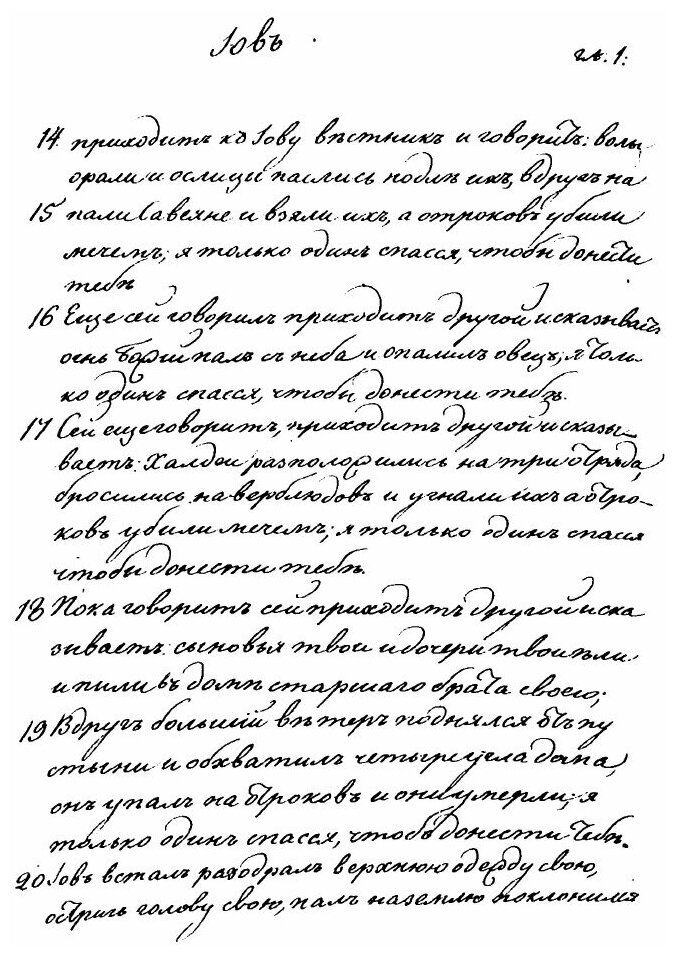 Іовъ
гл. 1:
14 приходитъ къ Іову вѣстникъ и говоритъ: волы
орали и ослицы паслись подлѣ ихъ, вдругъ на
15 пали Савеяне и взяли ихъ, а отроковъ убили
мечемъ; я только одинъ спасся, чтобы донести
тебѣ
16 Еще сей говорилъ приходитъ другой и сказываетъ
огнь Божій палъ съ неба и опалилъ овецъ; я толь-
ко одинъ спасся, чтобы донести тебѣ.
17 Сей еще говоритъ, приходитъ другой и сказы-
ваетъ: Халдеи разположились на три отряда,
бросились на верблюдовъ и угнали ихъ а отро-
ковъ убили мечемъ; я только одинъ спасся
чтобы донести тебѣ.
18 Пока говоритъ сей приходитъ другой и ска
зываетъ: сыновья твои и дочери твои ѣли
и пили въ домѣ старшаго брата своего;
19 Вдругъ большій вѣтеръ поднялся отъ пу
стыни и обхватилъ четыре угла дома,
онъ упалъ на отроковъ и они умерли; я
только одинъ спасся, чтобъ донести тебѣ.
20 Іовъ всталъ разодралъ верхнюю одежду свою,
остригъ голову свою, палъ на землю поклонился